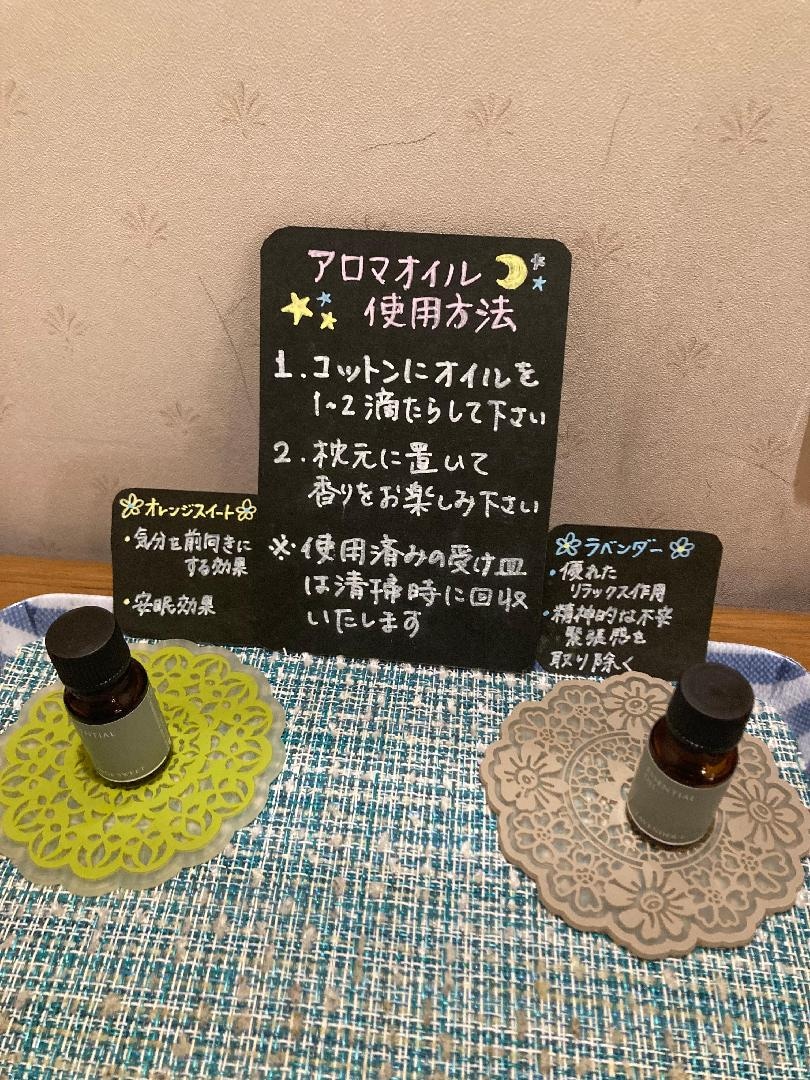 アロマオイル
使用方法
1. コットンにオイルを
1~2滴たらして下さい
2. 枕元に置いて
香りをお楽しみ下さい
※使用済みの受け皿
は清掃時に回収
いたします
オレンジスイート
・気分を前向きに
する効果
・安眠効果
ラベンダー
・優れた
リラックス作用
・精神的な不安
緊張感を
取り除く
ESSENTIAL